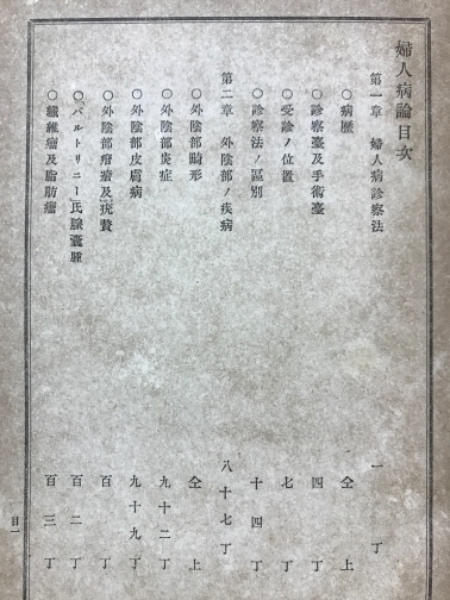 婦人病論目次
第一章 婦人病診察法 一丁
○病歴 仝上
○診察臺及手術臺 四丁
○受診ノ位置 七丁
○診察法ノ區別 十四丁
第二章 外陰部ノ疾病 八十七丁
○外陰部畸形 仝上
○外陰部炎症 九十二丁
○外陰部皮膚病 九十九丁
○外陰部瘡瘍及疣贅 百丁
○「バルトリニー」氏腺囊腫 百二丁
○纎維瘤及脂肪瘤 百三丁
目一